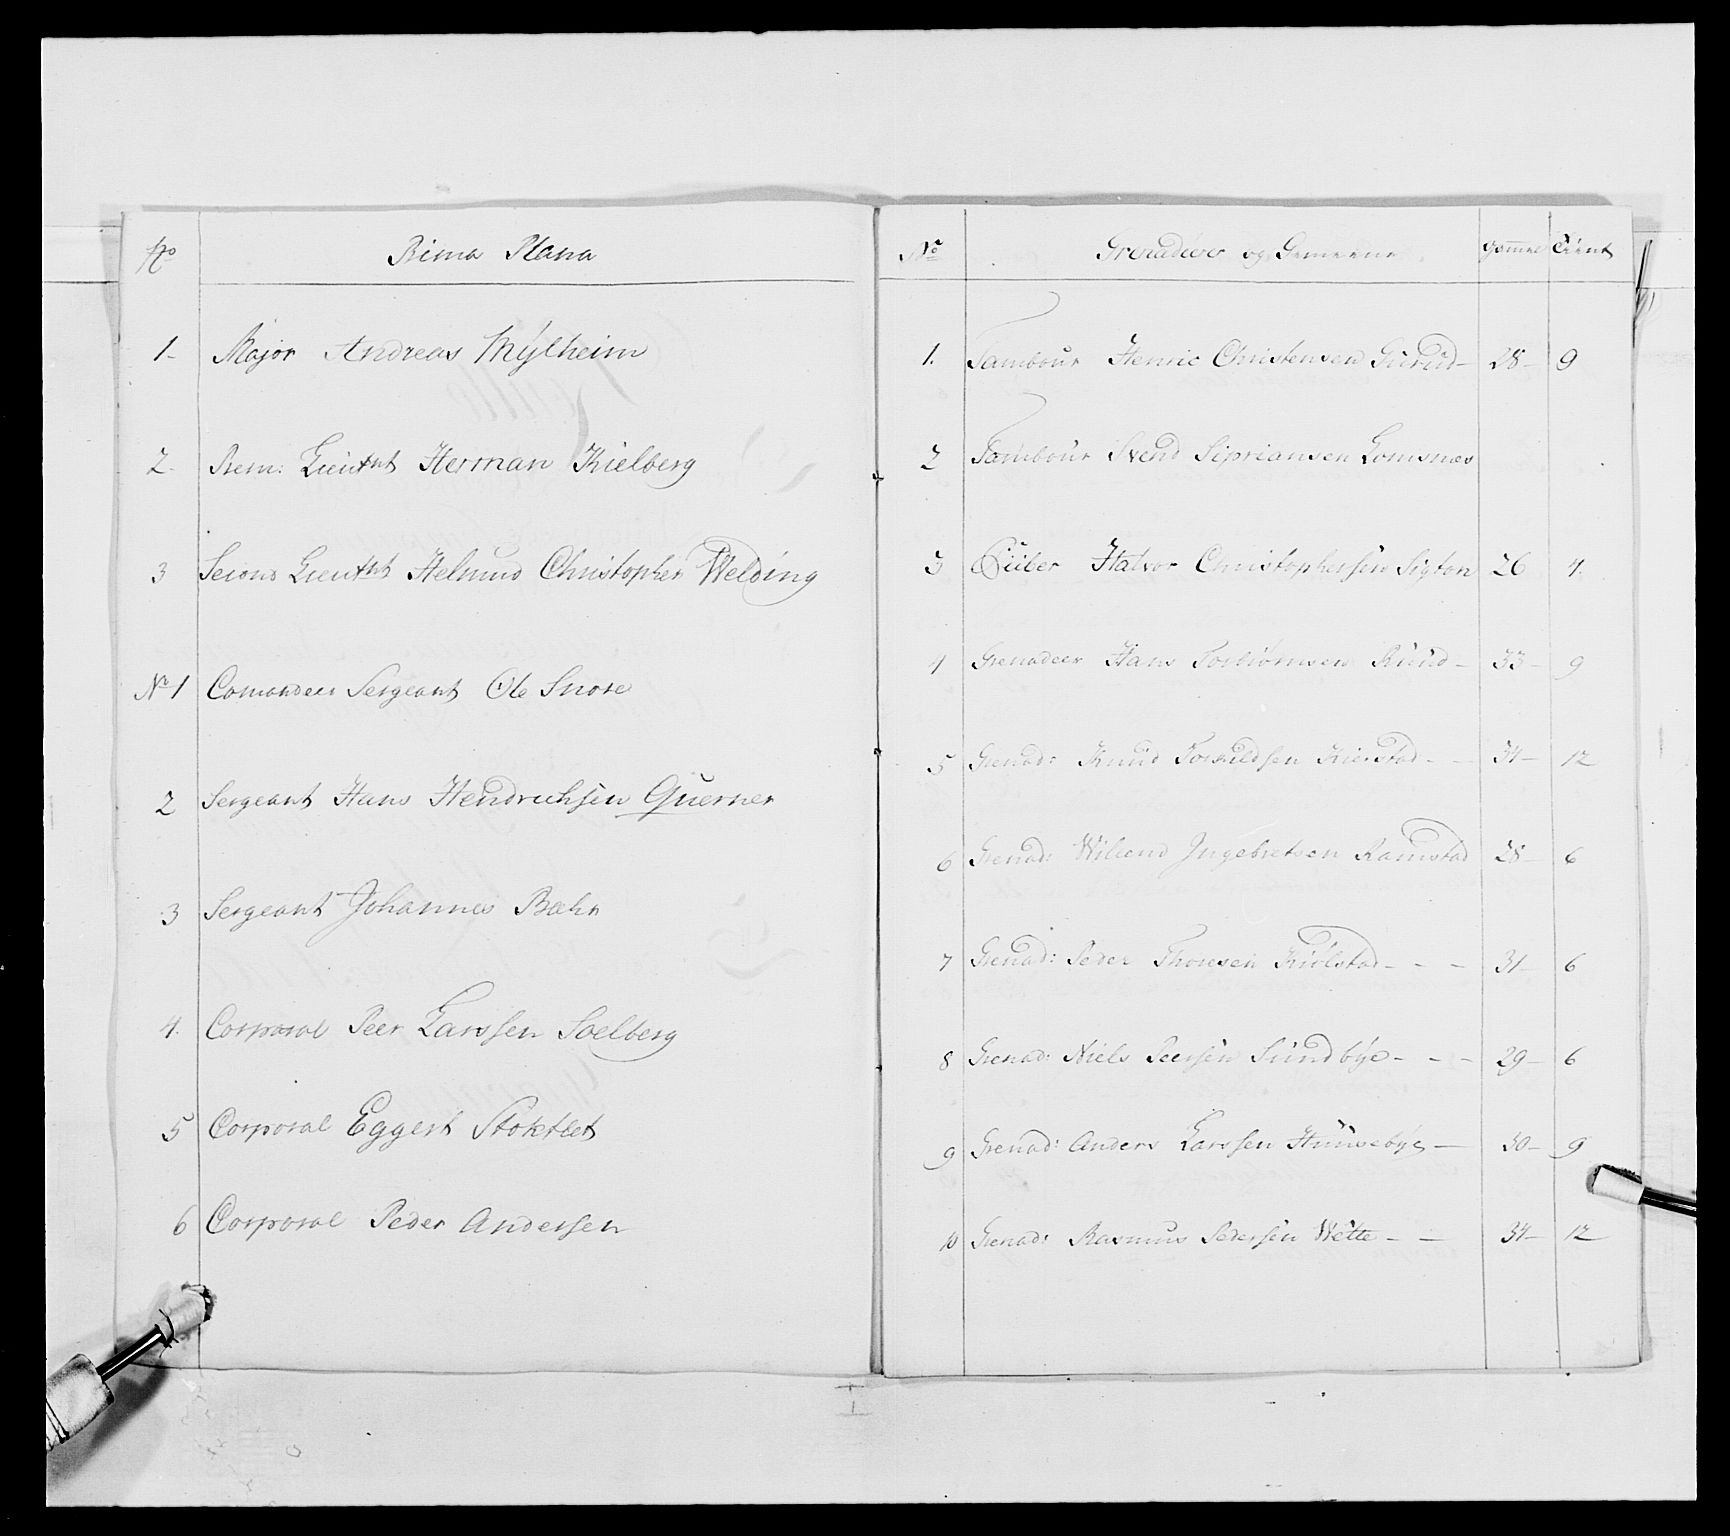 No Prima Plana
1- Major Andreas Mÿlheim
2. Prem: Lieutnt Herman Kielberg
3 Second Lieutnt Helmud Christopher Welding
No 1 Comandeer Sergeant Ole Snore
2 Sergeant Hans Hendrichsen Querner
3 Sergeant Johannes Bæhr
4. Corporal Peer Larssen Soelberg
5 Corporal Eggert Stoktlet
6 Corporal Peder Andersen
No Grenaderer og Gemeene Gammel Tient
1. Tambour Henric Christensen Gurud- 28- 9
2 Tambour Svend Sipriansen Lomsnæs
3 Piiber Halvor Christophersen Sigton 26 4.
4 Grenadeer Hans Torbiörnsen Ruud- 33- 9
5 Grenad: Knud Torkildsen Kierstad- - 34- 12
6 Grenad: Ingebretsen Ramstad 28- 6
7 Grenad: Peder Thoresen Kiölstad- - - 31- 6
8 Grenad: Niels Peersen Sundbÿe- - - 29- 6
9 Grenad: Anders Larssen Huusebÿe- 30- 9
10 Grenad: Rasmus Pedersen Wette- - 34- 12